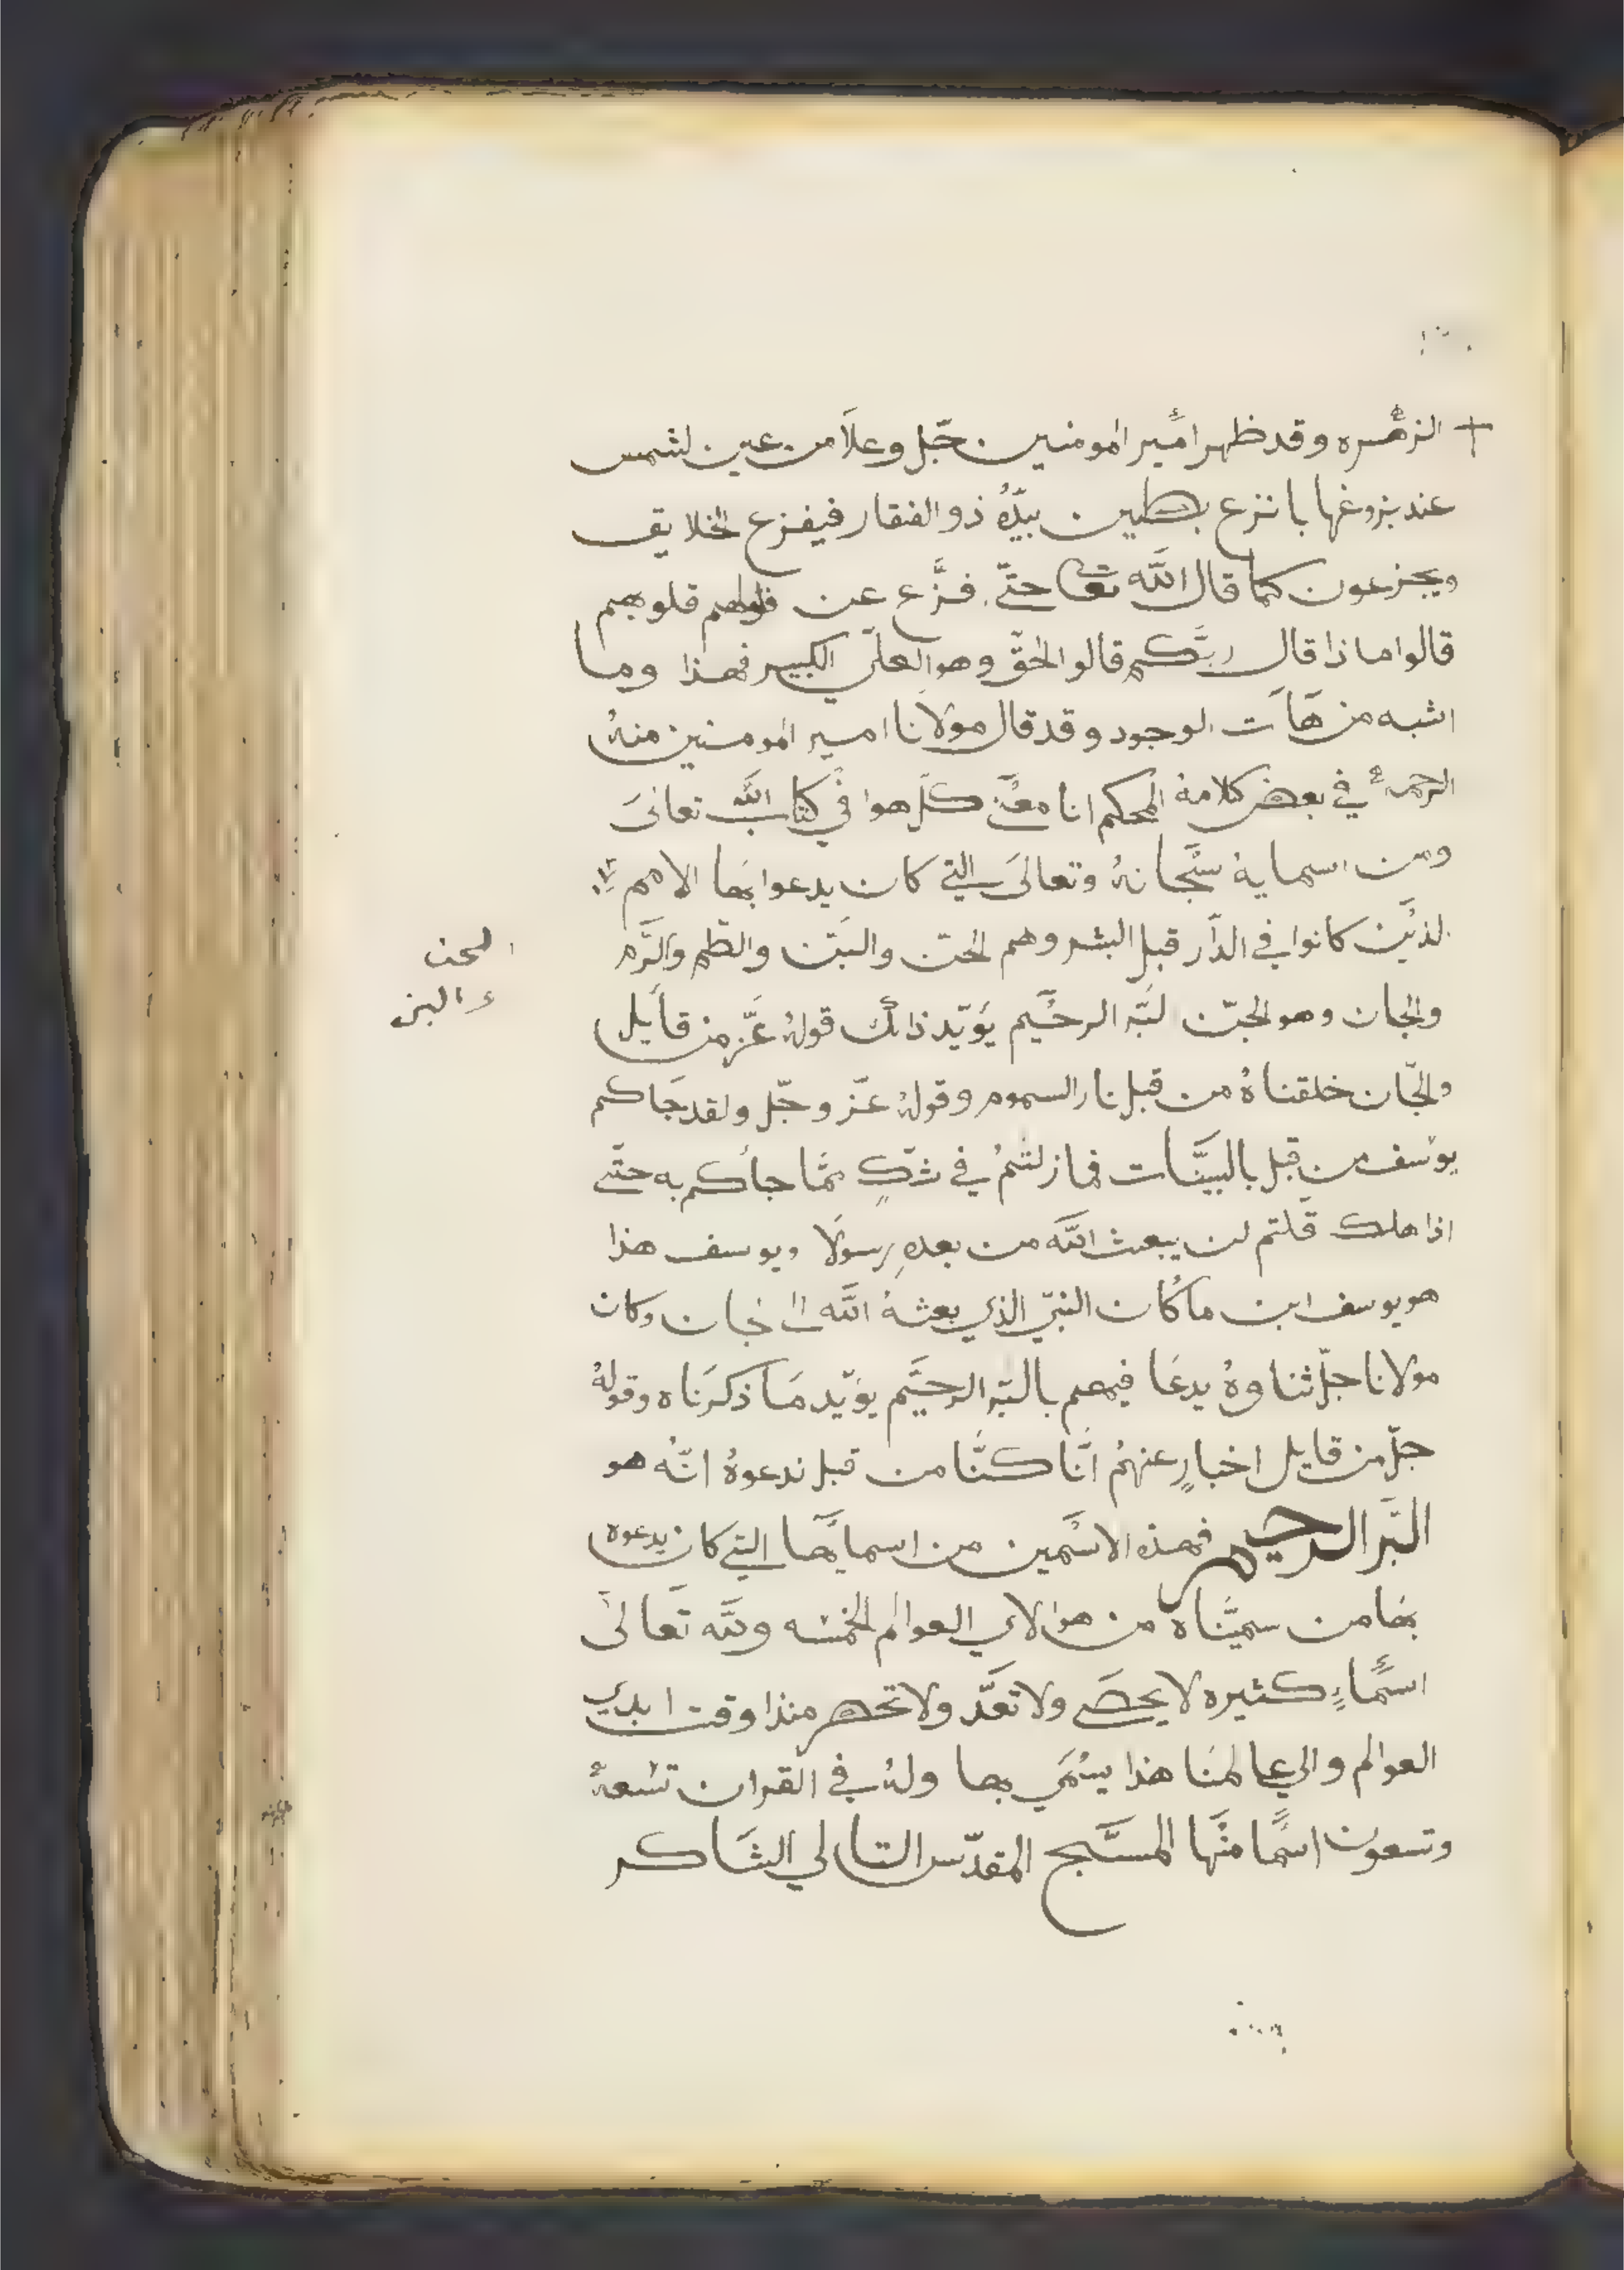 الزهره وقد ظهر امير المومنين جّل وعلا من عين لشمس
عند بزوغها بانزع بطين بيدّهُ ذو الفقار فيفزع الخلايق
ويجزعون كما قال اللّه تعا حتىّ فزّع عن قلوبهم
قالوا ماذا قال ربّكم قالو الحقّ وهو العليّ الكبير فهذا وما
اشبه من هات الوجود وقد قال مولانا امير المومنين منهُ
الرحمه في بعض كلامهُ المحكم انا معنىَ كلّ هوا في كتاب اللّه تعالىَ
ومن اسمايهُ سبّحانهُ وتعالىَ التي كان يدعوا بها الامم
لذيّن كانوا في الدّار قبل البشر وهم الحنّ والبنّ والطّم والرّم
والجان وهو الجنّ لبّر الرحّيم يؤيّد ذالك قولهُ عزّ من قايل
والجّان خلقناهُ من قبل نار السموم وقولهُ عزّ وجّل ولقد جاكم
يوسف من قبل بالبينّات فما زلتمُ في شكّ ممّا جاكم به حتّى
اذا هلك قلتم لن يبعث اللّه من بعدهِ رسولا ويوسف هذا
هو يوسف ابن ماكان النبيّ الذي بعثهُ اللّه الى لجان وكان
مولانا جلّ ثناوهُ يدعا فيهم بالبّر الرحيّم يؤيّد ما ذكرناه وقولهُ
جلّ من قايل اخبارٍ عنهمُ انّا كنّا من قبل ندعوهُ انّه هو
البّر الرحيم فهذه الاسمين من اسمايّها التي كان يدعوه
بها من سميّناه من هوالاي العوالم الخمسه وللّه تعالىَ
اسمّاءٍ كثيره لا يحصى ولا تعدّ ولا تحصر منذا وقت ابدي
العوالم والي عالمنا هذا يسمّي بها ولهُ في القران تسعهُ
وتسعون اسمًا منّها المسبّح المقدّس التالي الشاكر
الحن
والبن